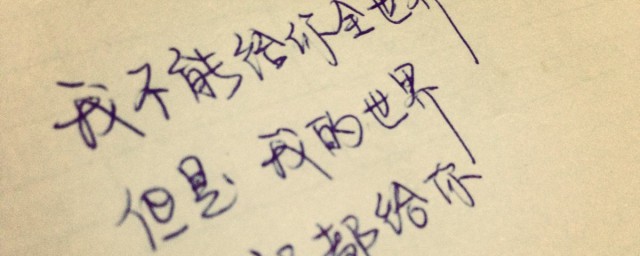 我不能给你全世界
但是 我的世界
都给你